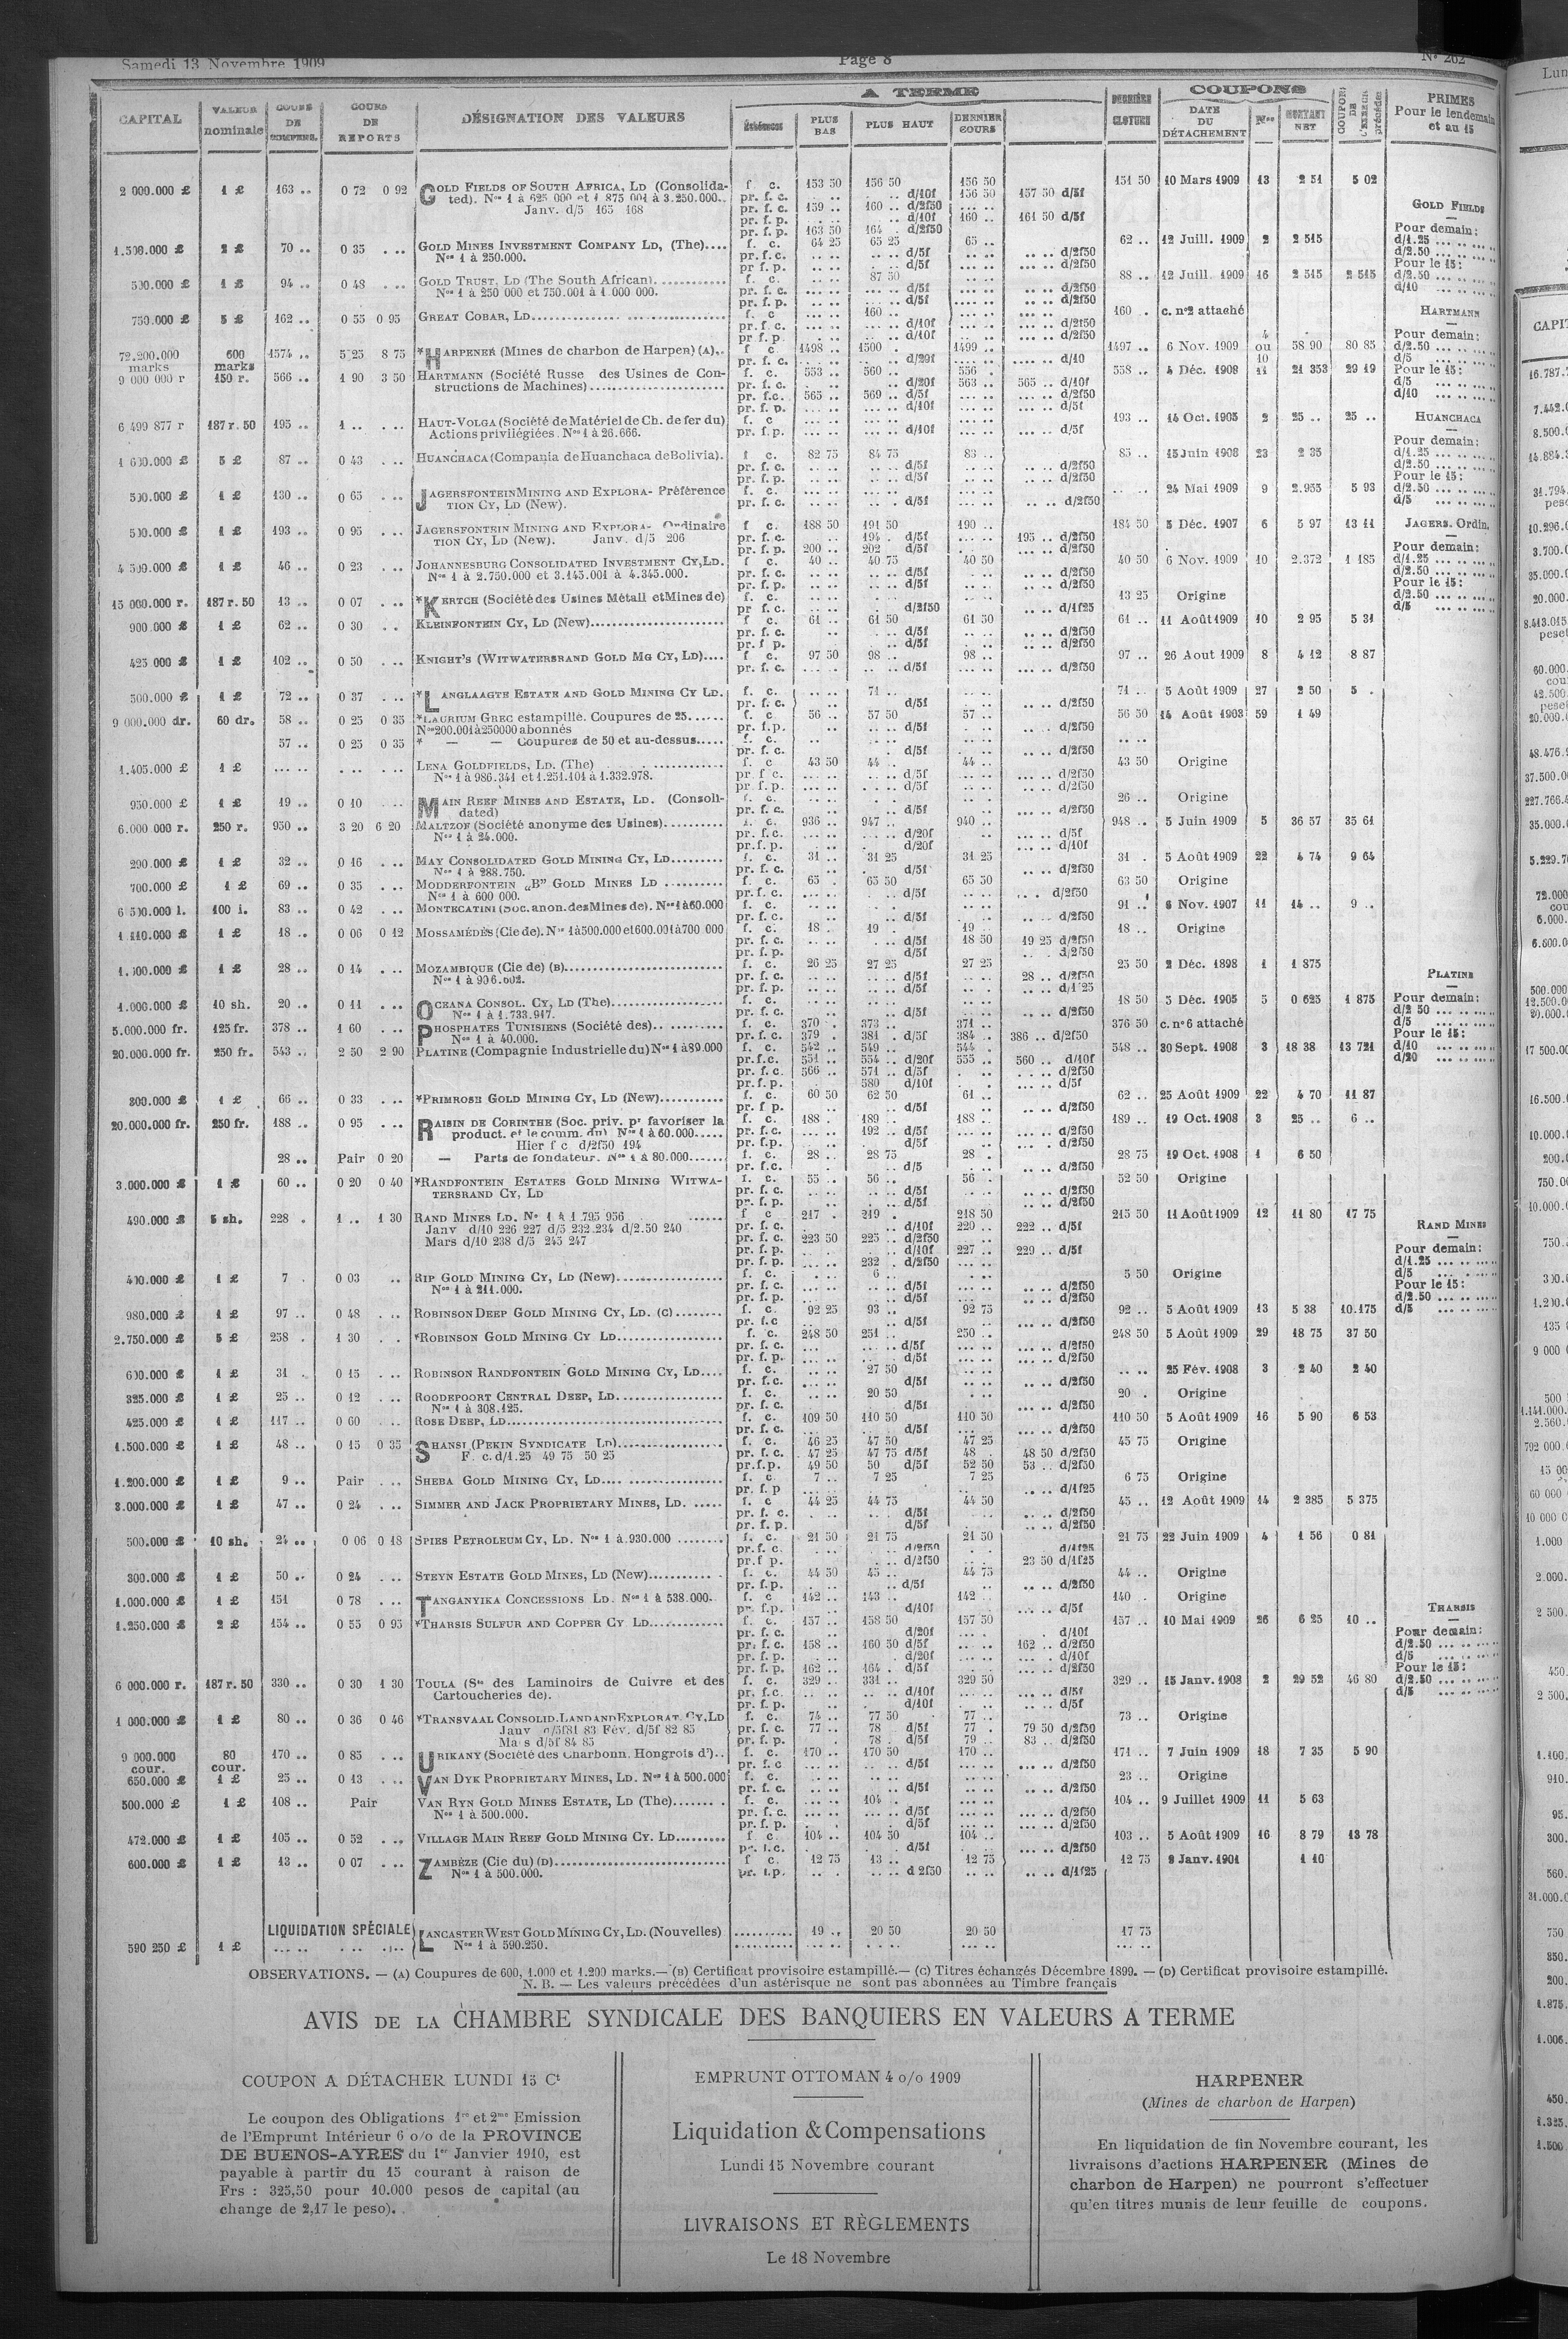 Samedi 13 Novembre 1909
Page 8
N° 262
CAPITAL
VALEUR nominale
COURS DE COMPENS.
COURS DE REPORTS
DÉSIGNATION DES VALEURS
A TERME
Échéances
PLUS BAS
PLUS HAUT
DERNIER COURS
DERNIÈRE CLOTURE
COUPONS
DATE DU DÉTACHEMENT
Nos
MONTANT NET
PRIMES
Pour le lendemain
et au 15
2 000.000 £ 1 £ 163 .. 0 72 0 92 GOLD FIELDS OF SOUTH AFRICA, LD (Consolida- f. c. 153 50 156 50 156 50 151 50 10 Mars 1909 13 2 51 5 02
ted). Nos 1 à 625 000 et 1 875 001 à 3.250.000.. pr. f. c. d/10f 156 50 157 50 d/5f
Janv. d/5 165 168 pr. f. c. 159 .. 160 .. d/2f50
pr. f. p. d/10f 160 .. 161 50 d/5f
pr. f. p. 163 50 164 . d/2f50
1.500.000 £ 2 £ 70 .. 0 35 GOLD MINES INVESTMENT COMPANY LD, (The).... f. c. 64 25 65 25 65 .. 62 .. 12 Juill. 1909 2 2 515
Nos 1 à 250.000. pr. f. c. d/5f d/2f50
pr f. p. d/5f d/2f50
500.000 £ 1 £ 94 .. 0 48 GOLD TRUST, LD (The South African). f. c. 87 50 88 .. 12 Juill. 1909 16 2 515 2 515
Nos 1 à 250 000 et 750.001 à 1.000 000. pr. f. c. d/5f d/2f50
pr. f. p. d/5f d/2f50
750.000 £ 5 £ 162 .. 0 55 0 95 GREAT COBAR, LD f. c 160 .. 160 . c. n°2 attaché
pr. f. c. d/10f d/2f50
pr f. p. d/10f d/2f50
72.200.000 marks 600 marks 1574 .. 5 25 8 75 *HARPENER (Mines de charbon de Harpen) (A).. f c 1498 .. 1500 . 1499 .. 1497 .. 6 Nov. 1909 4 ou 10 58 90 80 85
pr. f. c. d/20f d/10
9 000 000 r 150 r. 566 .. 1 90 3 50 HARTMANN (Société Russe des Usines de Con- f. c. 553 .. 560 .. 556 . 558 .. 4 Déc. 1908 11 21 353 29 19
structions de Machines) pr. f. c. d/20f 563 .. 565 .. d/10f
pr. f.c. 565 .. 569 .. d/5f d/2f50
pr. f. p. d/10f d/5f
6 499 877 r 187 r. 50 195 .. 1 .. HAUT-VOLGA (Société de Matériel de Ch. de fer du) f. c 193 .. 14 Oct. 1905 2 25 .. 25 ..
Actions privilégiées. Nos 1 à 26.666. pr. f.p. d/10f d/5f
1 600.000 £ 5 £ 87 .. 0 43 HUANCHACA (Compania de Huanchaca de Bolivia). f c. 82 75 84 75 83 .. 85 .. 15 Juin 1908 23 2 35
pr. f. c. d/5f d/2f50
pr. f. p. d/5f d/2f50
500.000 £ 1 £ 130 .. 0 65 JAGERSFONTEIN MINING AND EXPLORA- Préférence f. c. 24 Mai 1909 9 2.955 5 93
TION CY, LD (New). pr. f. c. d/5f d/2f50
500.000 £ 1 £ 193 .. 0 95 JAGERSFONTEIN MINING AND EXPLORA- Ordinaire f c. 188 50 191 50 190 .. 184 50 5 Déc. 1907 6 5 97 13 11
TION CY, LD (New). Janv. d/5 206 pr. f. c. 194 . d/5f 195 .. d/2f50
pr. f. p. 200 .. 202 d/5f d/2f50
4 500.000 £ 1 £ 46 .. 0 23 JOHANNESBURG CONSOLIDATED INVESTMENT CY, LD. f c. 40 .. 40 75 40 50 40 50 6 Nov. 1909 10 2.372 1 185
Nos 1 à 2.750.000 et 3.145.001 à 4.345.000. pr. f. c. d/5f d/2f50
pr. f. p. d/5f d/2f50
15 000.000 r. 187 r. 50 13 .. 0 07 *KERTCH (Société des Usines Métall et Mines de) f. c. 13 25 Origine
pr f. c. d/2f50 d/1f25
900.000 £ 1 £ 62 .. 0 30 KLEINFONTEIN CY, LD (New) f c. 61 .. 61 50 61 50 61 .. 11 Août 1909 10 2 95 5 31
pr. f. c. d/5f d/2f50
pr. f p. d/5f d/2f50
425 000 £ 1 £ 102 .. 0 50 KNIGHT'S (WITWATERSRAND GOLD MG CY, LD).... f. c 97 50 98 .. 98 .. 97 .. 26 Aout 1909 8 4 12 8 87
pr. f. c. d/5f d/2f50
500.000 £ 1 £ 72 .. 0 37 *LANGLAAGTE ESTATE AND GOLD MINING CY LD. f. c. 71 .. 71 .. 5 Août 1909 27 2 50 5 .
pr. f. c. d/5f d/2f50
9 000.000 dr. 60 dr. 58 .. 0 25 0 35 *LAURIUM GREC estampillé. Coupures de 25...... f. c 56 .. 57 50 57 .. 56 50 14 Août 1903 59 1 49
Nos 200.001 à 250000 abonnés pr. f.p. d/5f d/2f50
57 .. 0 25 0 35 * — — Coupures de 50 et au-dessus..... f. c.
pr. f. c. d/5f d/2f50
1.405.000 £ 1 £ LENA GOLDFIELDS, LD. (The) f. c 43 50 44 .. 44 .. 43 50 Origine
Nos 1 à 986.341 et 1.251.101 à 1.332.978. pr. f c. d/5f d/2f50
pr. f. p. d/5f d/2f50
950.000 £ 1 £ 19 .. 0 10 MAIN REEF MINES AND ESTATE, LD. (Consoli- f. c. 26 .. Origine
dated) pr. f. c. d/5f d/2f50
6.000 000 r. 250 r. 950 .. 3 20 6 20 MALTZOF (Société anonyme des Usines) f. c. 936 .. 947 .. 940 .. 948 .. 5 Juin 1909 5 36 57 35 61
Nos 1 à 24.000. pr. f.c. d/20f d/5f
pr.f. p. d/20f d/10f
290.000 £ 1 £ 32 .. 0 16 MAY CONSOLIDATED GOLD MINING CY, LD f. c. 31 .. 31 25 31 25 31 . 5 Août 1909 22 4 74 9 64
Nos 1 à 288.750. pr. f. c. d/5f d/2f50
700.000 £ 1 £ 69 .. 0 35 MODDERFONTEIN „B" GOLD MINES LD f. c. 65 . 65 50 65 50 63 50 Origine
Nos 1 à 600 000. pr.f. c. d/5f d/2f50
6 500.000 l. 100 l. 83 .. 0 42 MONTECATINI (Soc. anon. des Mines de). Nos 1 à 60.000 f. c. 91 .. 6 Nov. 1907 11 14 .. 9 ..
pr. f. c. d/5f d/2f50
1.110.000 £ 1 £ 18 .. 0 06 0 12 MOSSAMÉDÈS (Cie de). Nos 1 à 500.000 et 600.001 à 700 000 f. c. 18 . 19 . 19 .. 18 .. Origine
pr. f. c. d/5f 18 50 19 25 d/2f50
pr. f. p. d/5f d/2f50
1.000.000 £ 1 £ 28 .. 0 14 MOZAMBIQUE (Cie de) (B) f. c. 26 25 27 25 27 25 25 50 2 Déc. 1898 1 1 875
Nos 1 à 906.602. pr. f. c. d/5f 28 .. d/2f50
pr. f. p. d/5f d/1 25
1.000.000 £ 10 sh. 20 .. 0 11 OCEANA CONSOL. CY, LD (The) f. c. 18 50 5 Déc. 1905 5 0 625 1 875
Nos 1 à 1.733.947. pr. f. c. d/5f d/2f50
5.000.000 fr. 125 fr. 378 .. 1 60 PHOSPHATES TUNISIENS (Société des) f. c. 370 . 373 .. 371 .. 376 50 c. n° 6 attaché
Nos 1 à 40.000. pr. f. c. 379 . 381 . d/5f 384 .. 386 .. d/2f50
20.000.000 fr. 250 fr. 543 .. 2 50 2 90 PLATINE (Compagnie Industrielle du) Nos 1 à 89.000 f. c. 542 .. 549 .. 544 . 548 .. 30 Sept. 1908 3 18 38 13 721
pr.f.c. 551 .. 554 .. d/20f 555 .. 560 .. d/10f
pr. f. c. 566 .. 571 .. d/5f d/2f50
pr. f.p. 580 d/10f d/5f
300.000 £ 1 £ 66 .. 0 33 *PRIMROSE GOLD MINING CY, LD (New) f. c. 60 50 62 50 61 .. 62 .. 25 Août 1909 22 4 70 11 87
pr. f p. d/5f d/2f50
20.000.000 fr. 250 fr. 188 .. 0 95 RAISIN DE CORINTHE (Soc. priv. pr favoriser la f. c. 188 . 189 .. 188 .. 189 .. 19 Oct. 1908 3 25 .. 6 ..
product. et le comm. du) Nos 1 à 60.000..... pr. f.c. 192 .. d/5f d/2f50
Hier f c d/2f50 194 pr. f.p. d/5f d/2f50
28 .. Pair 0 20 — Parts de fondateur. Nos 1 à 80.000...... f. c. 28 .. 28 75 28 . 28 75 19 Oct. 1908 1 6 50
pr. f.c. d/5 d/2f50
3.000.000 £ 1 £ 60 .. 0 20 0 40 *RANDFONTEIN ESTATES GOLD MINING WITWA- f. c. 55 .. 56 .. 56 . 52 50 Origine
TERSRAND CY, LD pr. f. c. d/5f d/2f50
pr. f. p. d/5f d/2f50
490.000 £ 5 sh. 228 . 1 .. 1 30 RAND MINES LD. Nos 1 à 1 795 956 f c 217 . 219 . 218 50 215 50 11 Août 1909 12 11 80 17 75
Janv d/10 226 227 d/5 232.234 d/2.50 240 pr. f. c. d/10f 220 .. 222 .. d/5f
Mars d/10 238 d/5 245 247 pr. f. c. 223 50 225 .. d/2f50
pr. f. p. d/10f 227 .. 229 .. d/5f
pr. f. p. 232 . d/2f50
400.000 £ 1 £ 7 . 0 03 RIP GOLD MINING CY, LD (New) f. c. 6 .. 5 50 Origine
Nos 1 à 211.000. pr. f. c. d/5f d/2f50
pr. f. p. d/5f d/2f50
980.000 £ 1 £ 97 .. 0 48 ROBINSON DEEP GOLD MINING CY, LD. (C) f. c. 92 25 93 .. 92 75 92 .. 5 Août 1909 13 5 38 10.175
pr. f.c d/5f d/2f50
2.750.000 £ 5 £ 258 . 1 30 *ROBINSON GOLD MINING CY LD f. c. 248 50 251 .. 250 .. 248 50 5 Août 1909 29 18 75 37 50
pr. f. c. d/5f d/2f50
pr. f. p. d/5f d/2f50
600.000 £ 1 £ 31 . 0 15 ROBINSON RANDFONTEIN GOLD MINING CY, LD.... f. c. 27 50 25 Fév. 1908 3 2 40 2 40
pr. f.c. d/5f d/2f50
325.000 £ 1 £ 25 .. 0 12 ROODEPOORT CENTRAL DEEP, LD f. c. 20 50 20 . Origine
Nos 1 à 308.125. pr. f. c. d/5f d/2f50
425.000 £ 1 £ 117 .. 0 60 ROSE DEEP, LD f. c. 109 50 110 50 110 50 110 50 5 Août 1909 16 5 90 6 53
pr. f. c. d/5f d/2f50
1.500.000 £ 1 £ 48 .. 0 15 0 35 SHANSI (PEKIN SYNDICATE LD) f. c. 46 25 47 50 47 25 45 75 Origine
F. c. d/1.25 49 75 50 25 pr. f. c. 47 25 47 75 d/5f 48 . 48 50 d/2f50
pr.f.p. 49 50 50 d/5f 52 50 53 .. d/2f50
1.200.000 £ 1 £ 9 .. Pair SHEBA GOLD MINING CY, LD f. c. 7 .. 7 25 7 25 6 75 Origine
pr. f.p d/1f25
3.000.000 £ 1 £ 47 .. 0 24 SIMMER AND JACK PROPRIETARY MINES, LD. f. c 44 25 44 75 44 50 45 .. 12 Août 1909 14 2 385 5 375
pr. f. c. d/5f d/2f50
pr. f. p. d/5f d/2f50
500.000 £ 10 sh. 24 .. 0 06 0 18 SPIES PETROLEUM CY, LD. Nos 1 à 930.000 f. c. 21 50 21 75 21 50 21 75 22 Juin 1909 4 1 56 0 81
pr.f. c. d/2f50 d/1f25
pr.f p. d/2f50 23 50 d/1f25
300.000 £ 1 £ 50 .. 0 24 STEYN ESTATE GOLD MINES, LD (New) f. c. 44 50 45 .. 44 75 44 .. Origine
pr. f.p. d/5f d/2f50
1.000.000 £ 1 £ 151 0 78 TANGANYIKA CONCESSIONS LD. Nos 1 à 538.000.. f. c 142 .. 143 .. 142 .. 140 . Origine
pr. f.p. d/10f d/5f
1.250.000 £ 2 £ 154 .. 0 55 0 95 *THARSIS SULFUR AND COPPER CY LD f. c. 157 .. 158 50 157 50 157 .. 10 Mai 1909 26 6 25 10 ..
pr. f. c. d/20f d/10f
pr. f. c. 158 .. 160 50 d/5f 162 .. d/2f50
pr. f. p. d/20f d/10f
pr. f. p. 162 .. 164 . d/5f d/2f50
6 000.000 r. 187 r. 50 330 .. 0 30 1 30 TOULA (Sté des Laminoirs de Cuivre et des f. c. 329 .. 331 .. 329 50 329 .. 15 Janv. 1908 2 29 52 46 80
Cartoucheries de). pr. f.c. d/10f d/5f
pr. f. p. d/10f d/5f
1 000.000 £ 1 £ 80 .. 0 36 0 46 *TRANSVAAL CONSOLID. LAND AND EXPLORAT. CY, LD f. c. 74 .. 77 50 77 .. 73 .. Origine
Janv d/5f 81 83 Fév. d/5f 82 85 pr. f. c. 77 .. 78 d/5f 77 . 79 50 d/2f50
Mars d/5f 84 85 pr. f. p. 78 . d/5f 79 .. 83 .. d/2f50
9 000.000 cour. 80 cour. 170 .. 0 85 URIKANY (Société des Charbonn. Hongrois d').. f. c. 170 .. 170 50 170 .. 171 .. 7 Juin 1909 18 7 35 5 90
pr. f. c d/5f d/2f50
650.000 £ 1 £ 25 .. 0 13 VAN DYK PROPRIETARY MINES, LD. Nos 1 à 500.000 f. c. 23 .. Origine
pr. f. c. d/5f d/2f50
500.000 £ 1 £ 108 .. Pair VAN RYN GOLD MINES ESTATE, LD (The) f. c. 104 . 104 .. 9 Juillet 1909 11 5 63
Nos 1 à 500.000. pr. f. c. d/5f d/2f50
pr. f. p. d/5f d/2f50
472.000 £ 1 £ 105 .. 0 52 VILLAGE MAIN REEF GOLD MINING CY. LD f c. 104 .. 104 50 104 .. 103 .. 5 Août 1909 16 8 79 13 78
pr. f.c. d/5f d/2f50
600.000 £ 1 £ 13 .. 0 07 ZAMBÈZE (Cie du) (D) f c. 12 75 13 .. 12 75 12 75 9 Janv. 1901 1 10
Nos 1 à 500.000. pr. f.p. d 2f50 d/1f25
LIQUIDATION SPÉCIALE LANCASTER WEST GOLD MINING CY, LD. (Nouvelles) 19 .. 20 50 20 50 17 75
590 250 £ 1 £ Nos 1 à 590.250.
GOLD FIELDS
Pour demain:
d/1.25
d/2.50
Pour le 15:
d/2.50
d/10
HARTMANN
Pour demain:
d/2.50
d/5
Pour le 15:
d/5
d/10
HUANCHACA
Pour demain:
d/1.25
d/2.50
Pour le 15:
d/2.50
d/5
JAGERS. Ordin.
Pour demain:
d/1.25
d/2.50
Pour le 15:
d/2.50
d/5
PLATINE
Pour demain:
d/2 50
d/5
Pour le 15:
d/10
d/20
RAND MINES
Pour demain:
d/1.25
d/5
Pour le 15:
d/2.50
d/5
THARSIS
Pour demain:
d/2.50
d/5
Pour le 15:
d/2.50
d/5
OBSERVATIONS. — (A) Coupures de 600, 1.000 et 1.200 marks.— (B) Certificat provisoire estampillé.— (C) Titres échangés Décembre 1899. — (D) Certificat provisoire estampillé.
N. B. — Les valeurs précédées d'un astérisque ne sont pas abonnées au Timbre français
AVIS DE LA CHAMBRE SYNDICALE DES BANQUIERS EN VALEURS A TERME
COUPON A DÉTACHER LUNDI 15 Ct
Le coupon des Obligations 1re et 2me Emission
de l'Emprunt Intérieur 6 o/o de la PROVINCE
DE BUENOS-AYRES du 1er Janvier 1910, est
payable à partir du 15 courant à raison de
Frs : 325,50 pour 10.000 pesos de capital (au
change de 2,17 le peso).
EMPRUNT OTTOMAN 4 o/o 1909
Liquidation & Compensations
Lundi 15 Novembre courant
LIVRAISONS ET RÈGLEMENTS
Le 18 Novembre
HARPENER
(Mines de charbon de Harpen)
En liquidation de fin Novembre courant, les
livraisons d'actions HARPENER (Mines de
charbon de Harpen) ne pourront s'effectuer
qu'en titres munis de leur feuille de coupons.